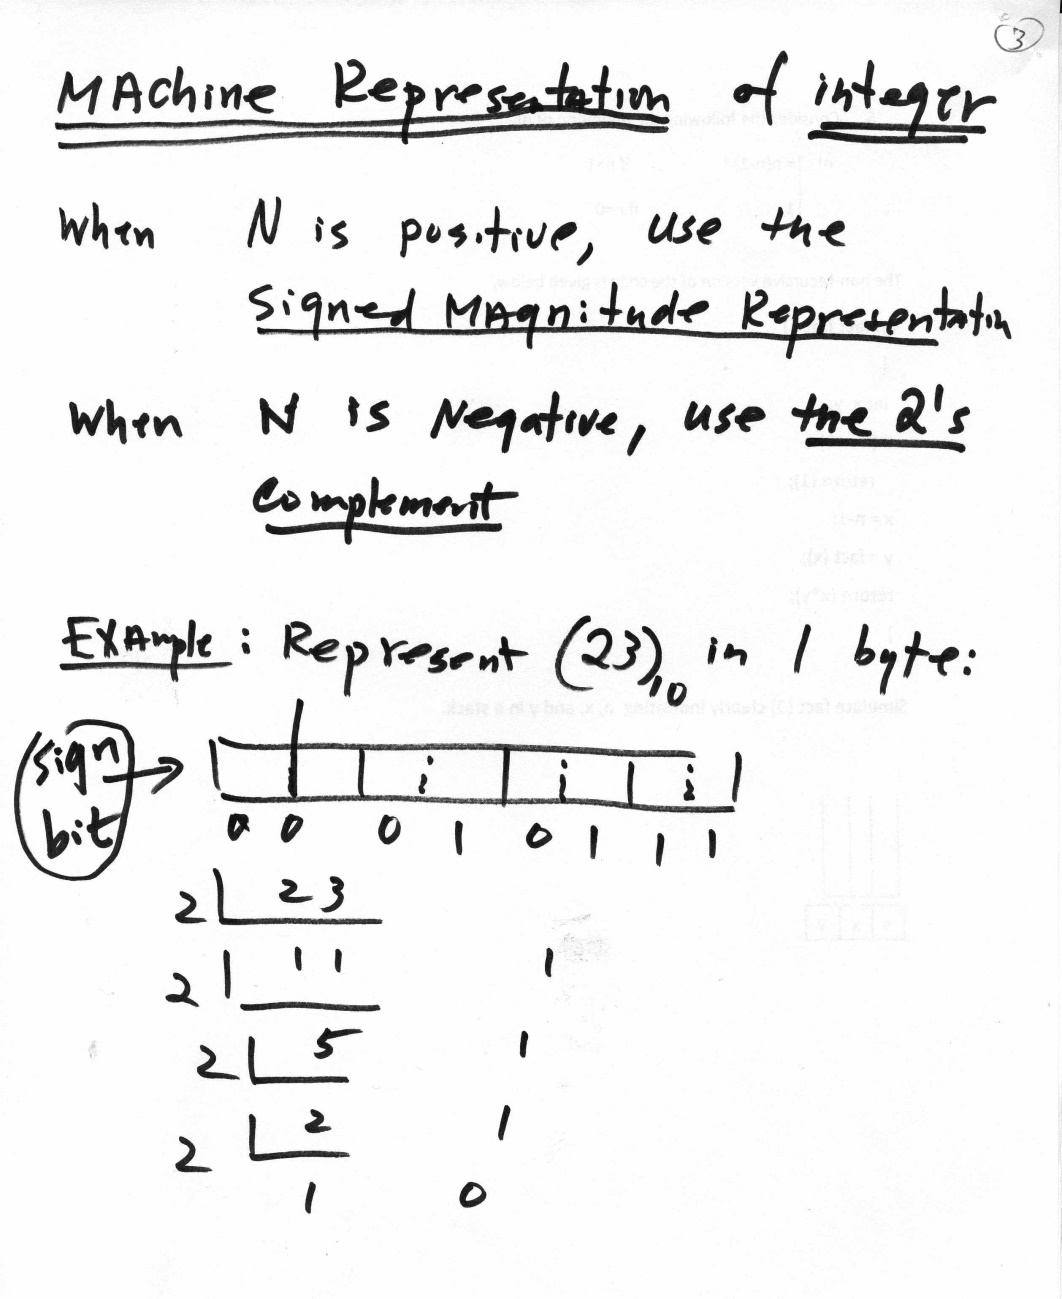 3
MAchine Representation of integer
When N is positive, use the
Signed MAgnitude Representatin
When N is Negative, use the 2's
complement
EXAmple: Represent (23)10 in 1 byte:
sign
bit
0 0 0 1 0 1 1 1
2 23
2 11 1
2 5 1
2 2 1
1 0